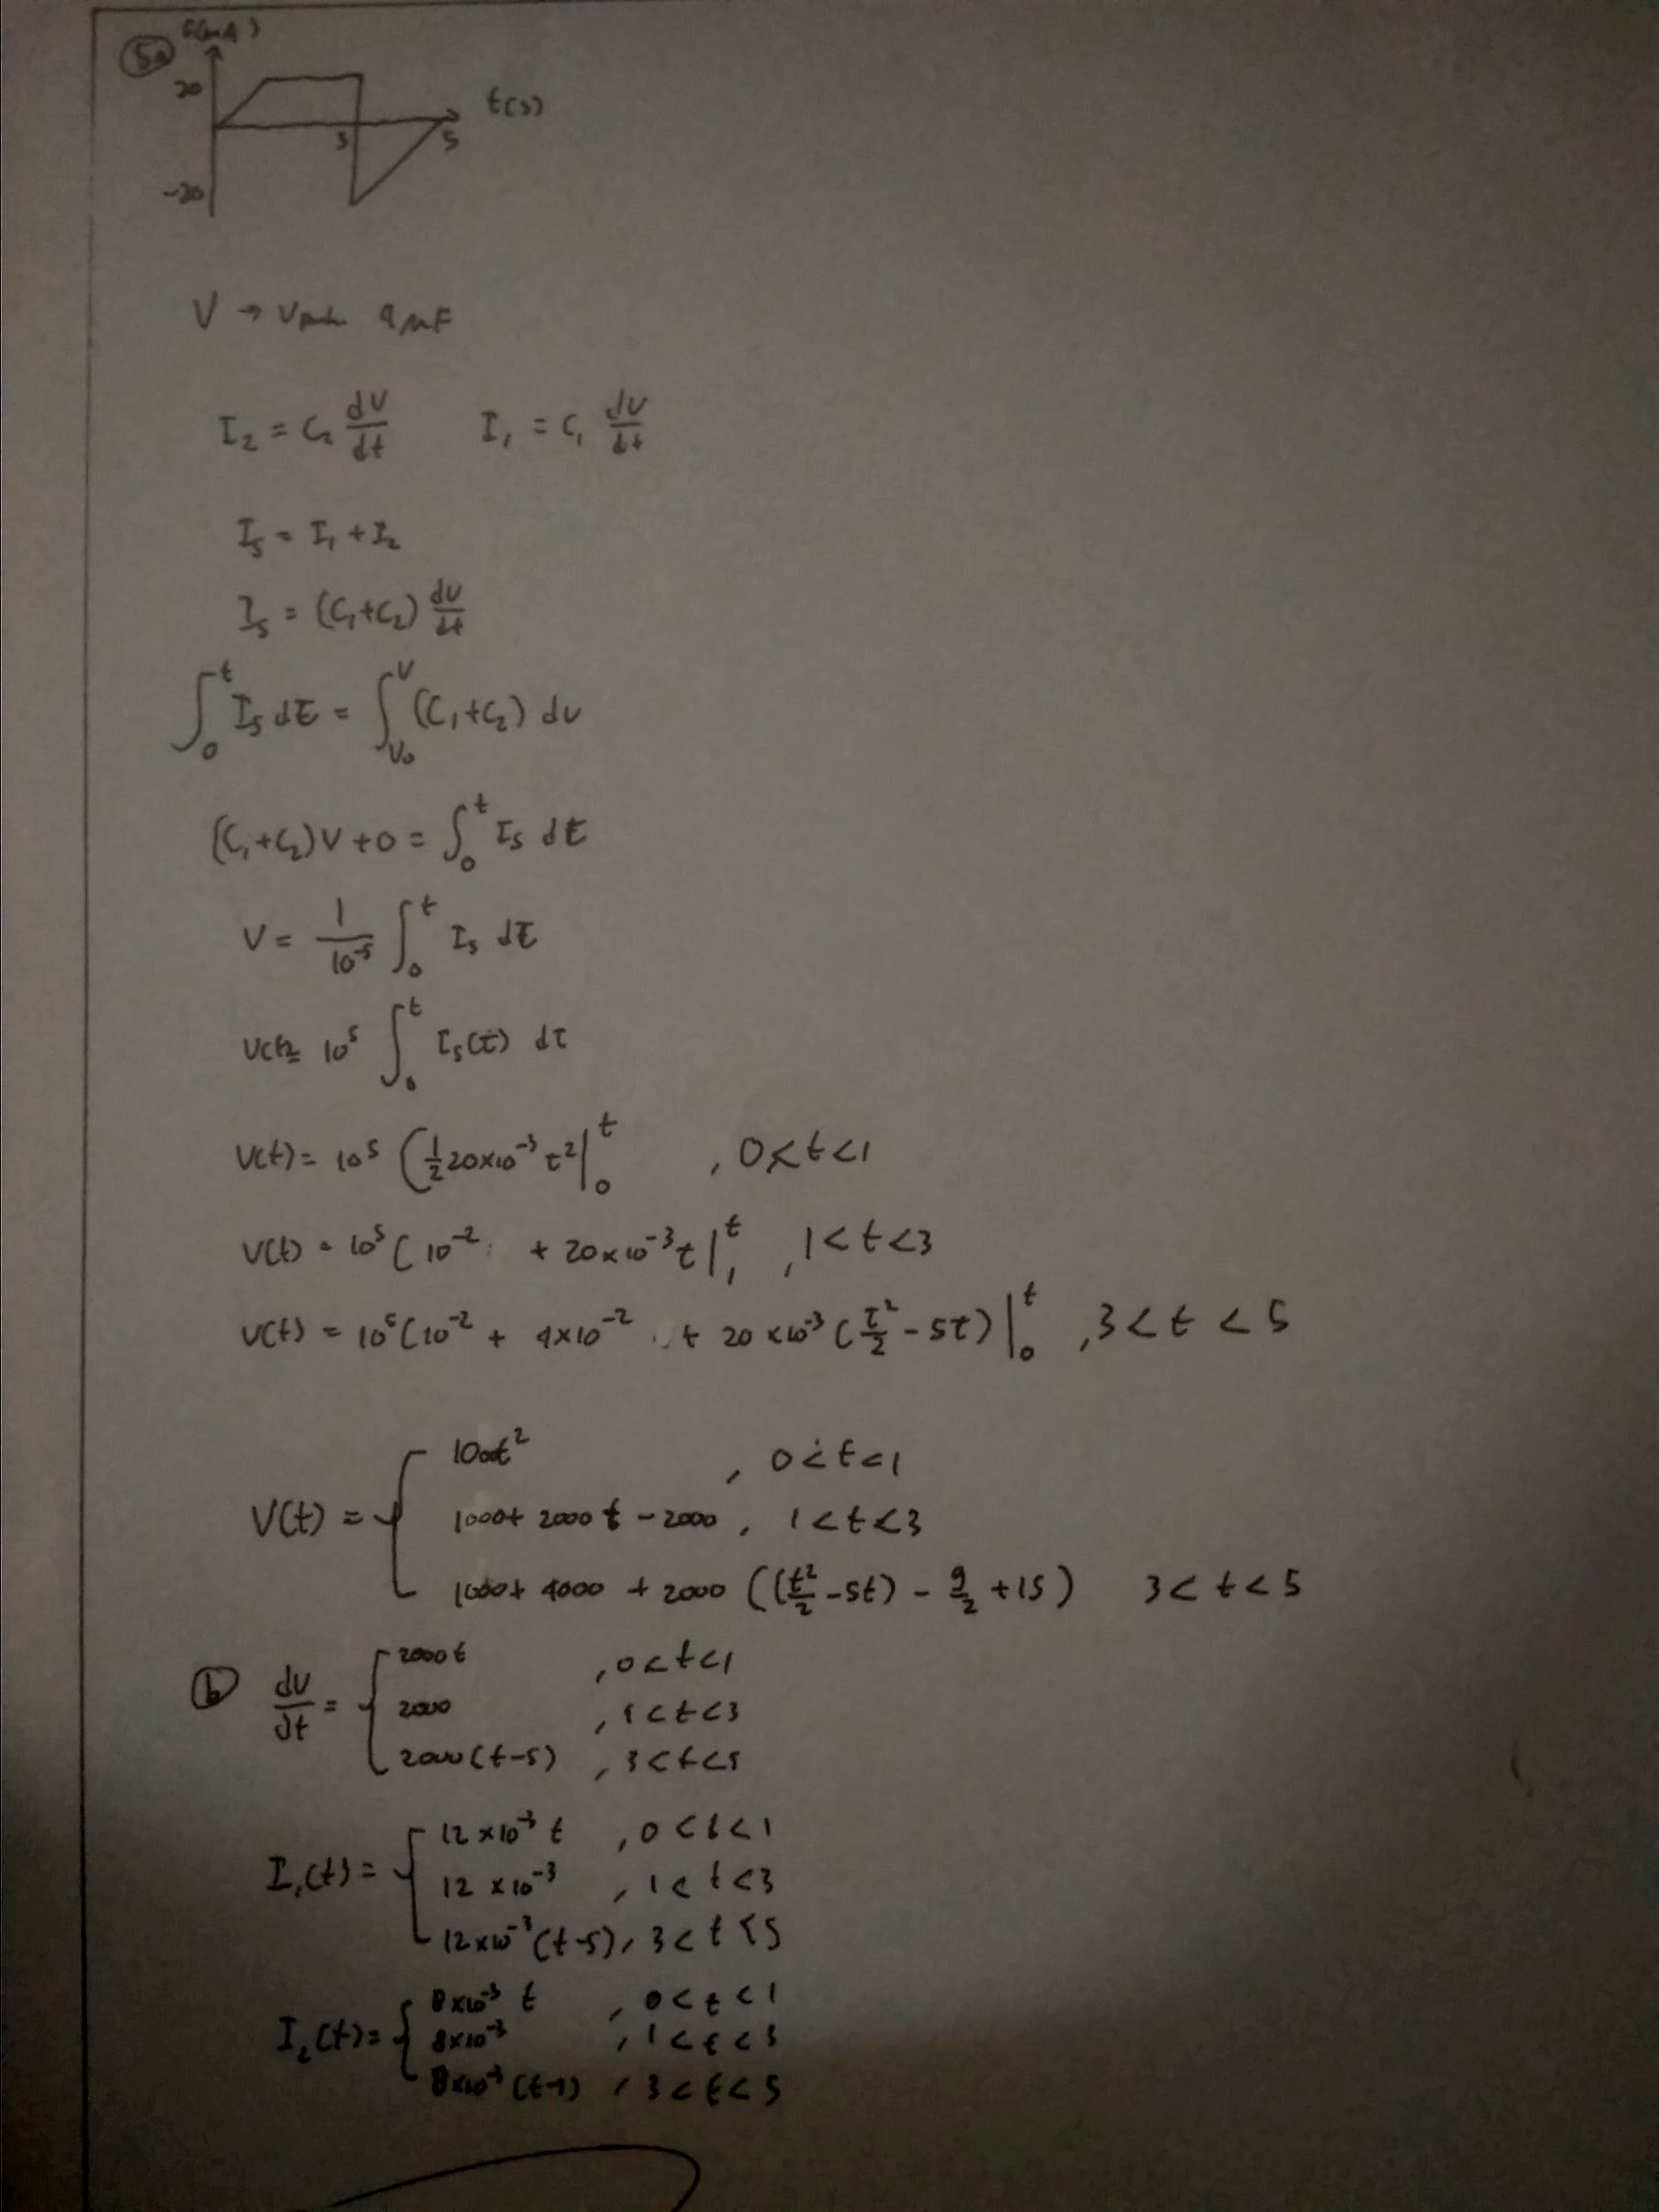 5a
20
t(s)
3
5
-20
V →
I₂ = C₂ dV/dt I₁ = C₁ dV/dt
I_s = I₁ + I₂
I_s = (C₁+C₂) dV/dt
∫₀^t I_s dt = ∫_{V₀}^V (C₁+C₂) dv
(C₁+C₂)V + 0 = ∫₀^t I_s dt
V = 1/10⁻⁵ ∫₀^t I_s dt
V(t) = 10⁵ ∫₀^t I_s(τ) dτ
V(t) = 10⁵ (1/2 20×10⁻³ τ² |₀^t , 0<t<1
V(t) = 10⁵ (10⁻² + 20×10⁻³ t |₁^t , 1<t<3
V(t) = 10⁵ (10⁻² + 4×10⁻² + 20×10⁻³ (τ²/2 - 5τ) |₀^t , 3<t<5
V(t) = { 1000t² , 0<t<1
1000 + 2000t - 2000 , 1<t<3
1000 + 4000 + 2000 ((t²/2 - 5t) - 9/2 + 15) 3<t<5
b dv/dt = { 2000t , 0<t<1
2000 , 1<t<3
2000(t-5) , 3<t<5
I₁(t) = { 12×10⁻³ t , 0<t<1
12×10⁻³ , 1<t<3
12×10⁻³ (t-5) , 3<t<5
I₂(t) = { 8×10⁻³ t , 0<t<1
8×10⁻³ , 1<t<3
8×10⁻³ , 3<t<5